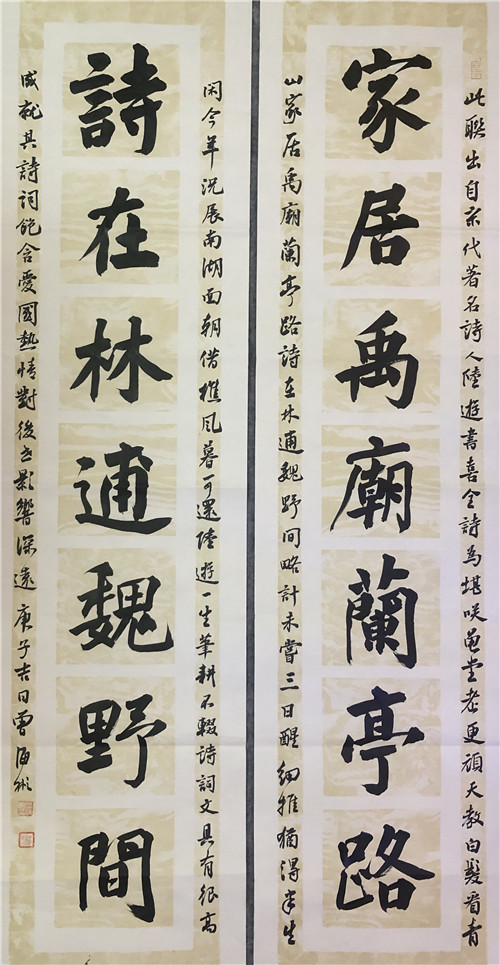 此聯出自宋代著名詩人陸遊書喜全詩為堪咲龜堂老更頑天教白髮看青
家居禹廟蘭亭路
山家居禹廟蘭亭路詩在林逋魏野間略計未嘗三日醒細推猶得半生
闲今年況展南湖面朝借樵風暮可還陸遊一生筆耕不輟詩詞文具有很高
詩在林逋魏野間
成就其詩詞飽含愛國熱情對後世影響深遠庚子吉日曾海